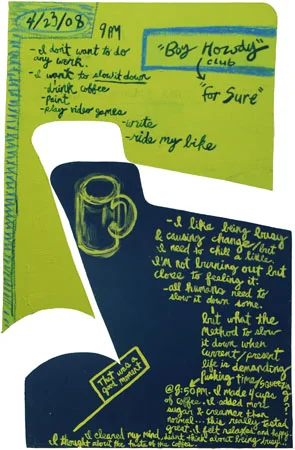 4/23/08
9PM
- I don't want to do
any work.
- I want to slow it down
- drink coffee
- paint
- play video games
- write
- ride my bike
"Boy Howdy"
club
"For Sure"
- I like being busy
& causing change/but
I need to chill a little.
I'm not burning out but
close to feeling it.
- all humans need to
slow it down some.
but what the
method to slow
it down when
current/present
life is demanding
pushing time/squeezing
@8:50PM. I made 4 cups
of coffee. I added most
sugar & creamer than
normal... this really tasted
great. I felt relaxed and happy.
I cleaned my mind, didnt think about being busy...
I thought about the taste of the coffee.
That was a
good moment